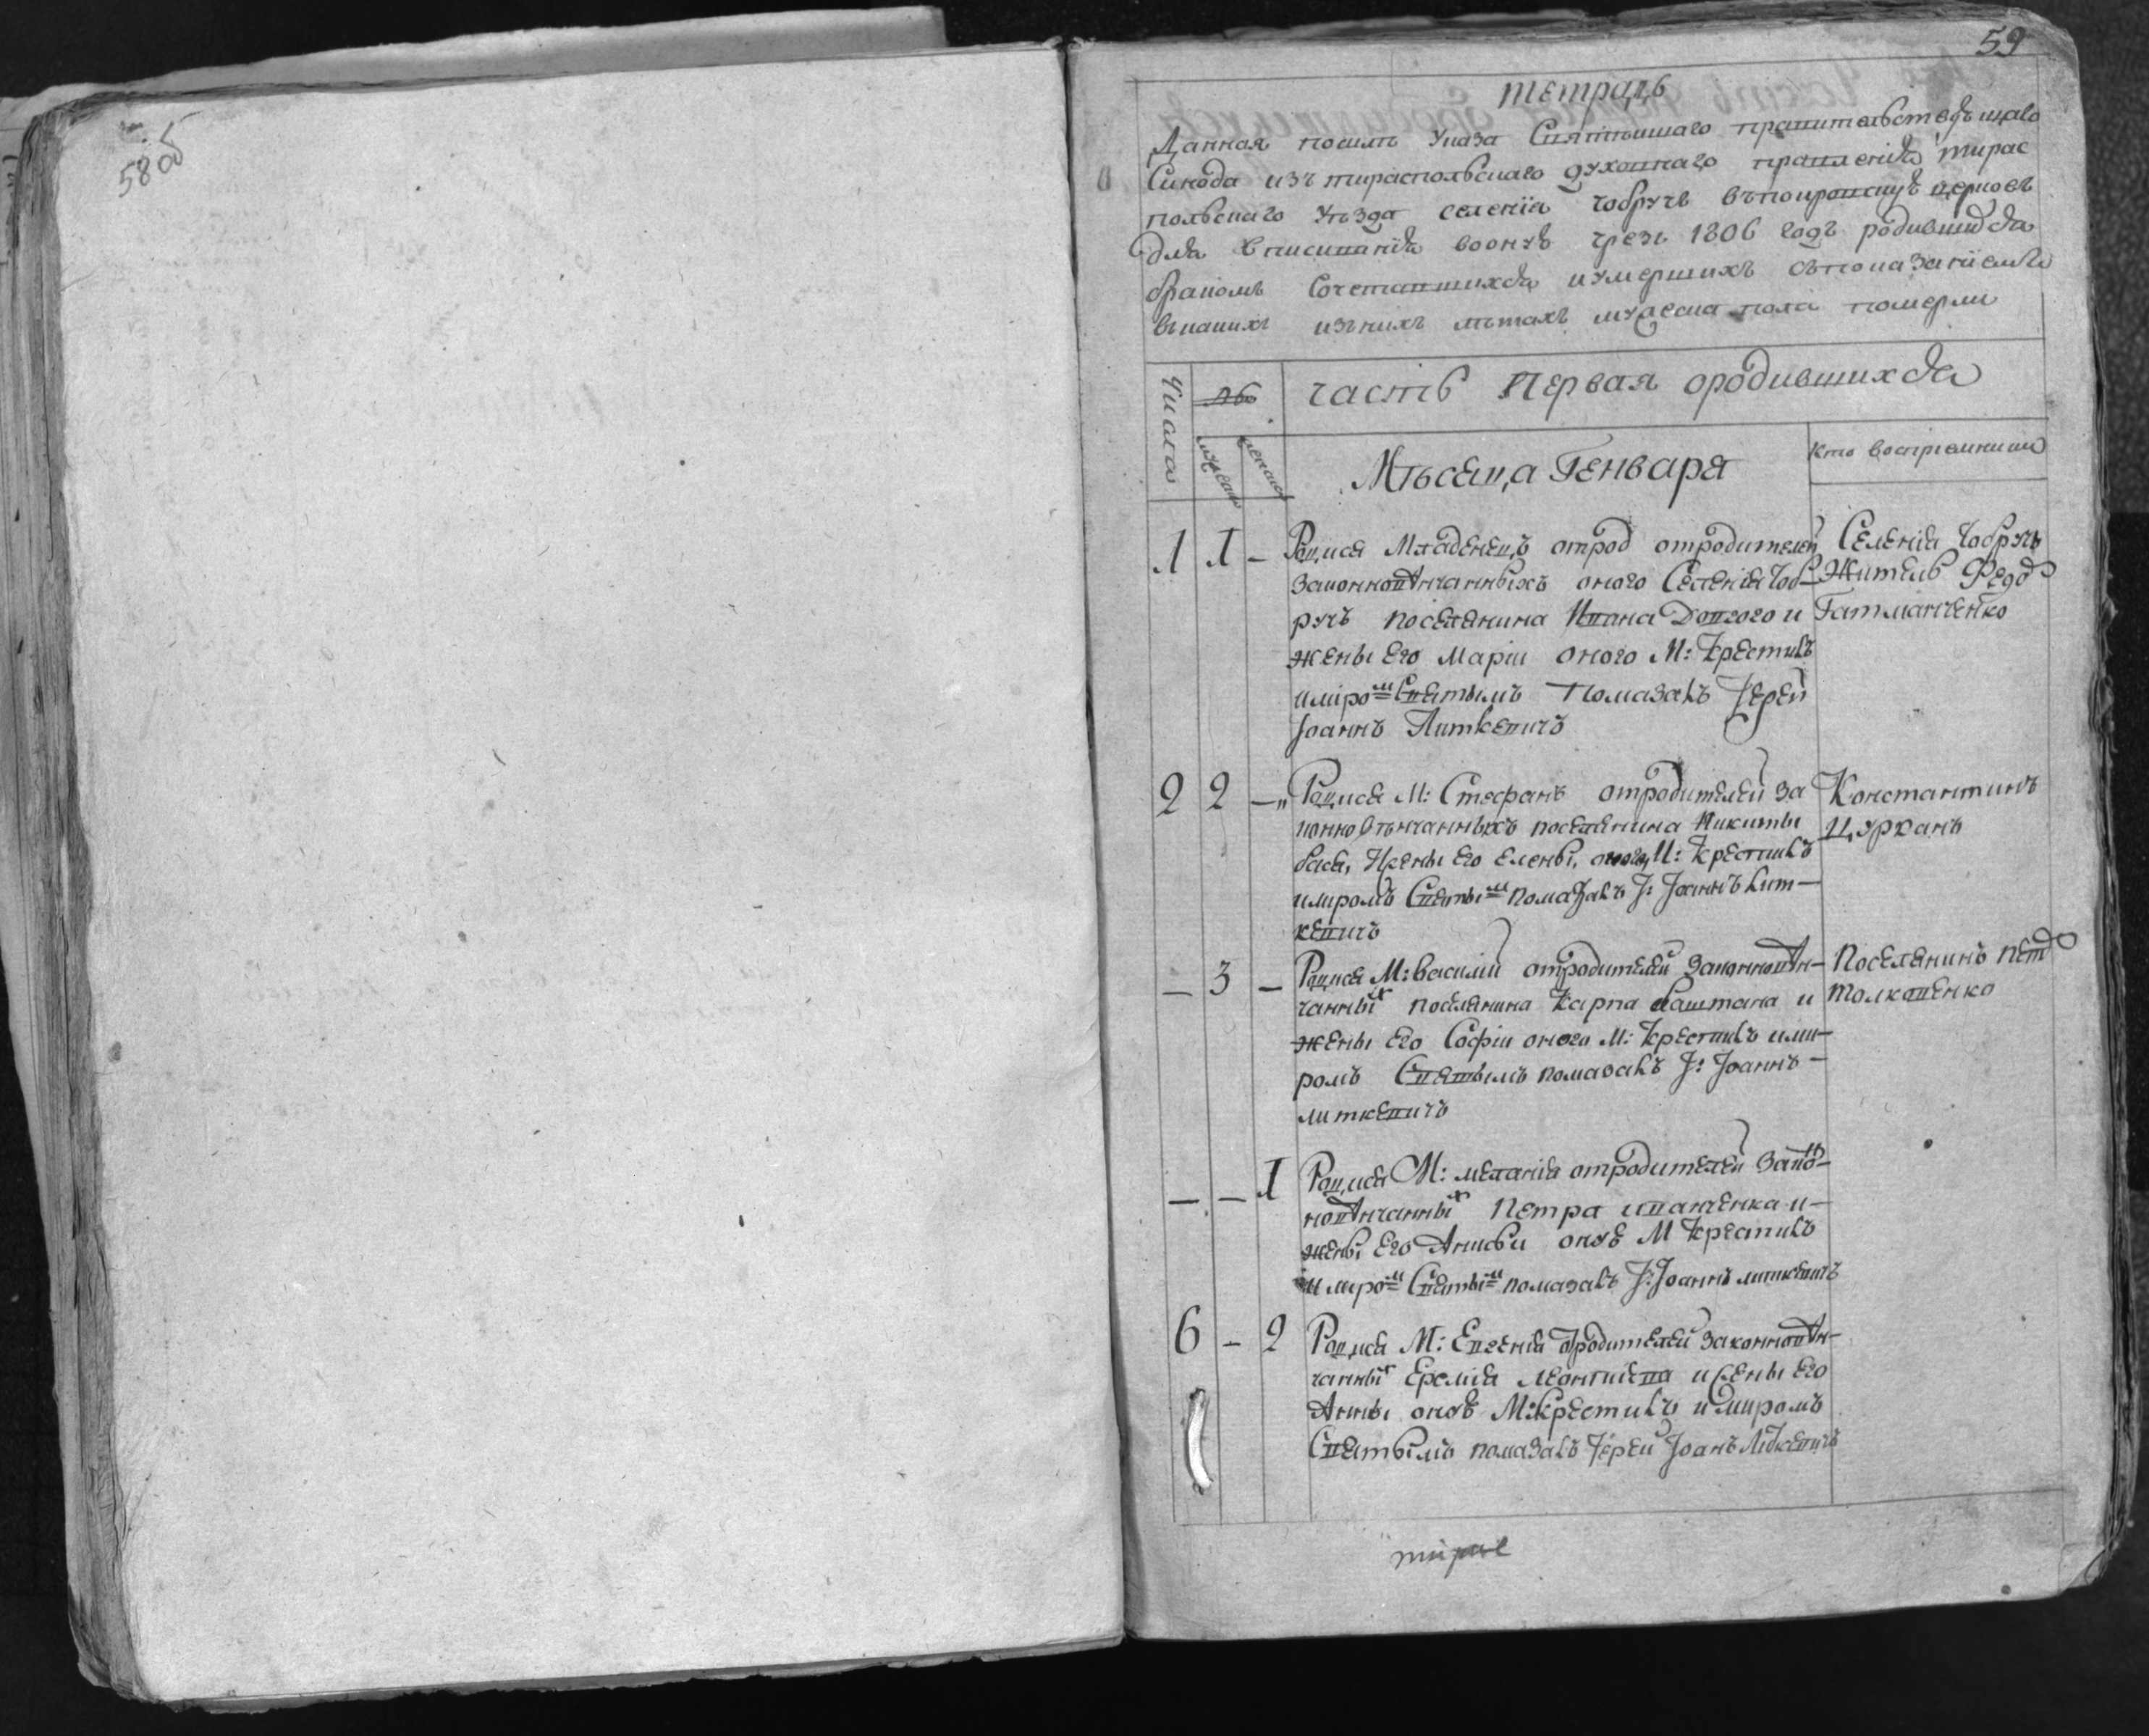 58 об
59
тетрадь
Данная посилѣ Указа Святѣйшаго правительствующаго
Синода изъ тираспольскаго духовнаго правленія тирас
польскаго уѣзда селенія чобручь въ покровскую церковь
для вписиванія вооную чрезъ 1806 годъ родившихся
бракомъ Сочетавшихся и умершихъ съ показаніемъ
въ какихъ изъ нихъ лѣтахъ мужеска пола померли
Числа
часть Первая ородившихся
мужеска
женска
Мѣсяца Генваря
кто воспріемники
1 1 — Родися Младенецъ отрод отродителей
законновѣнчанныхъ оного Селенія Чоб—
ручъ поселянина Ивана Довгого и
жены Его Маріи оного М: Крестилъ
и міромъ Святымъ Помазалъ Іерей
Іоаннъ Литкевичъ
Селенія Чобручь
Житель Федо
Гатманченко
2 2 —„ Родися М: Стефанъ отродителей за
конновѣнчанныхъ поселянина Никиты
баса, И жены Его Елены, оного М: Крестилъ
и миромъ Святымъ помазалъ І: Іоаннъ Лит—
кевичъ
Константинъ
Цурканъ
— 3 — Родися М: василій отродителей законновѣн—
чанныхъ поселянина Карпа баштана и
жены Его Софіи оного М: Крестилъ и ми—
ромъ Святымъ помазалъ І: Іоаннъ —
литкевичъ
Поселянинъ Пет
Толкаченко
— — 1 Родися М: меланія отродителей закон—
новѣнчанныхъ Петра иванченка и—
жены Его Анны оную М Крестилъ
и миромъ Святымъ помазалъ І: Іоаннъ литкевичъ
6 — 2 Родися М: Евгенія отродителей законновѣн—
чанныхъ Еремія леонтиева и жены Его
Анны оную М: Крестилъ и миромъ
Святымъ помазалъ Іерей Іоанъ Литкевичъ